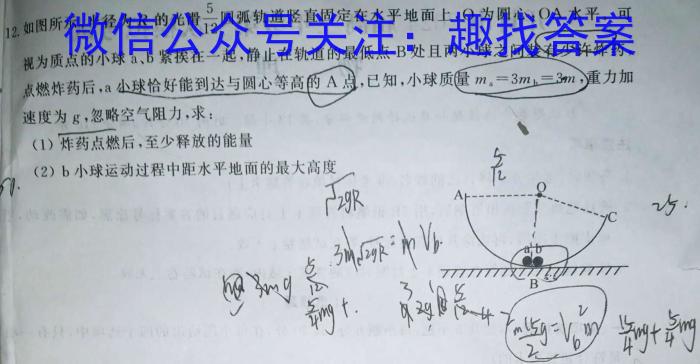 12.如图所示,半径为R的光滑5/12圆弧轨道竖直固定在水平地面上,O为圆心,OA水平,可
微信公众号关注:趣找答案
视为质点的小球a、b紧挨在一起,静止在轨道的最低点B处且两小球之间装有少许炸药,
点燃炸药后,a小球恰好能到达与圆心等高的A点,已知,小球质量mₐ=3m_b=3m,重力加
速度为g,忽略空气阻力,求:
(1)炸药点燃后,至少释放的能量
(2)b小球运动过程中距水平地面的最大高度
5/12
A
O
C
√2gR
25.
3m√2gR=mV_b
a b
B
3mg